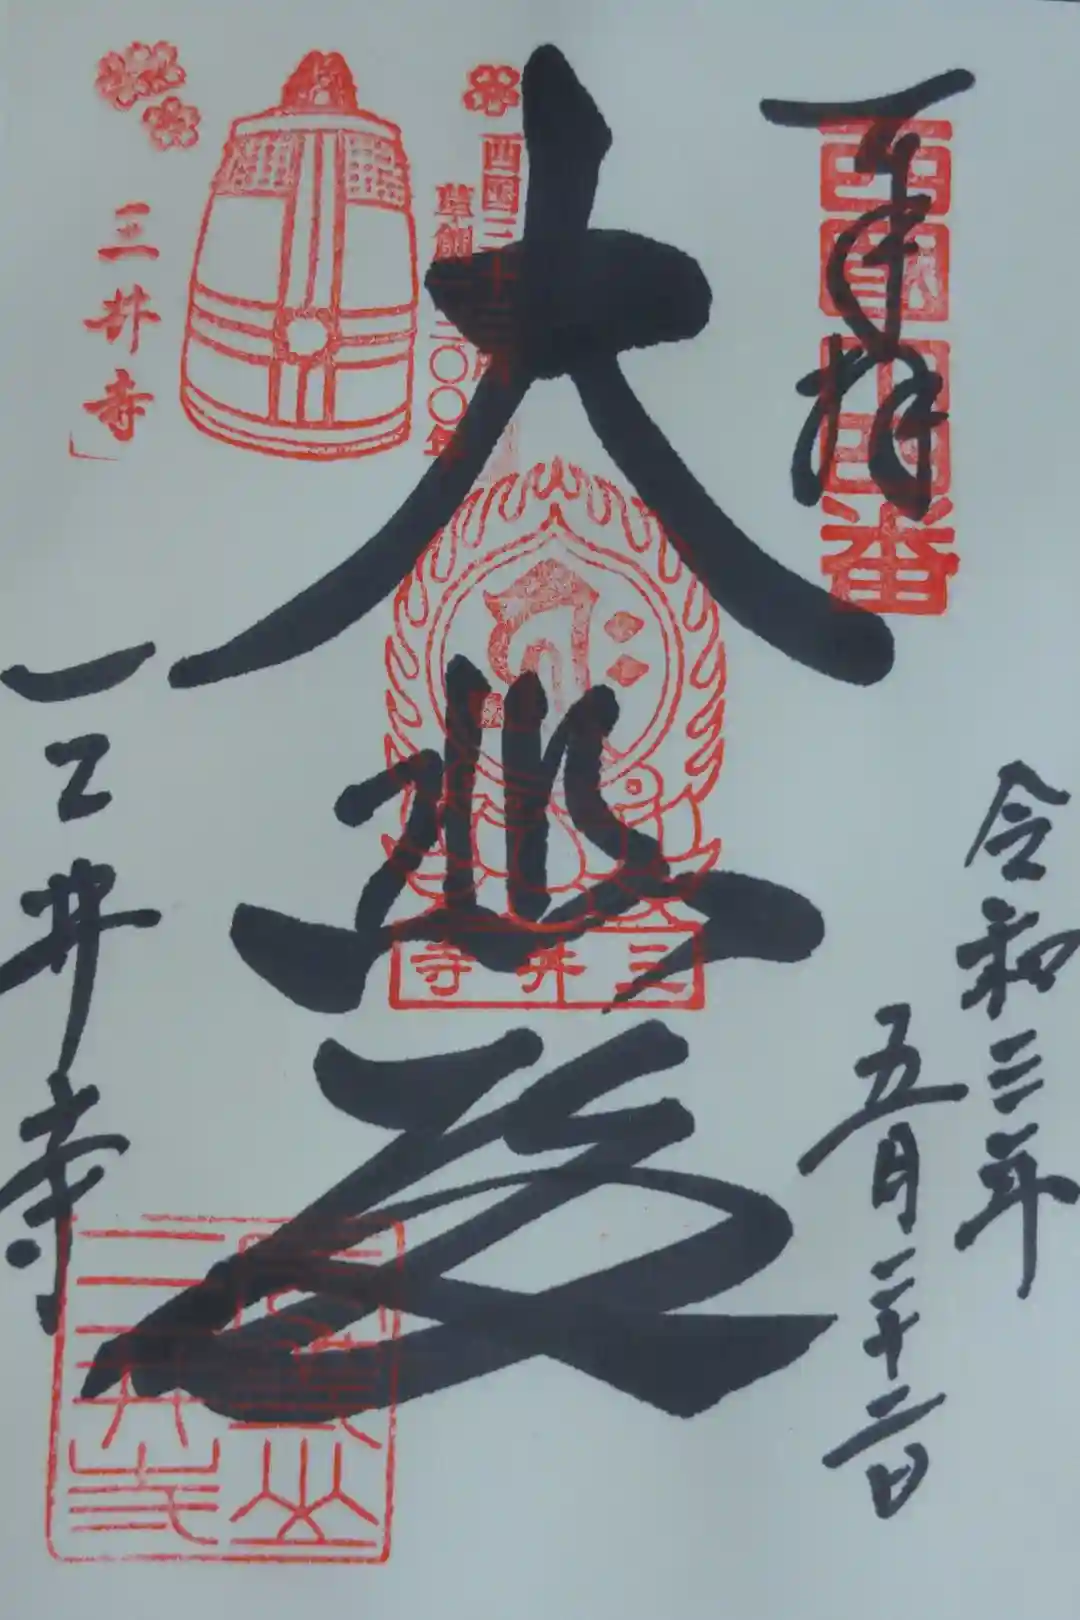 奉拝
西国十四番
令和三年
五月二十二日
西国三十三所
草創一三〇〇年
大悲殿
三井寺
三井寺
三井寺
三井寺